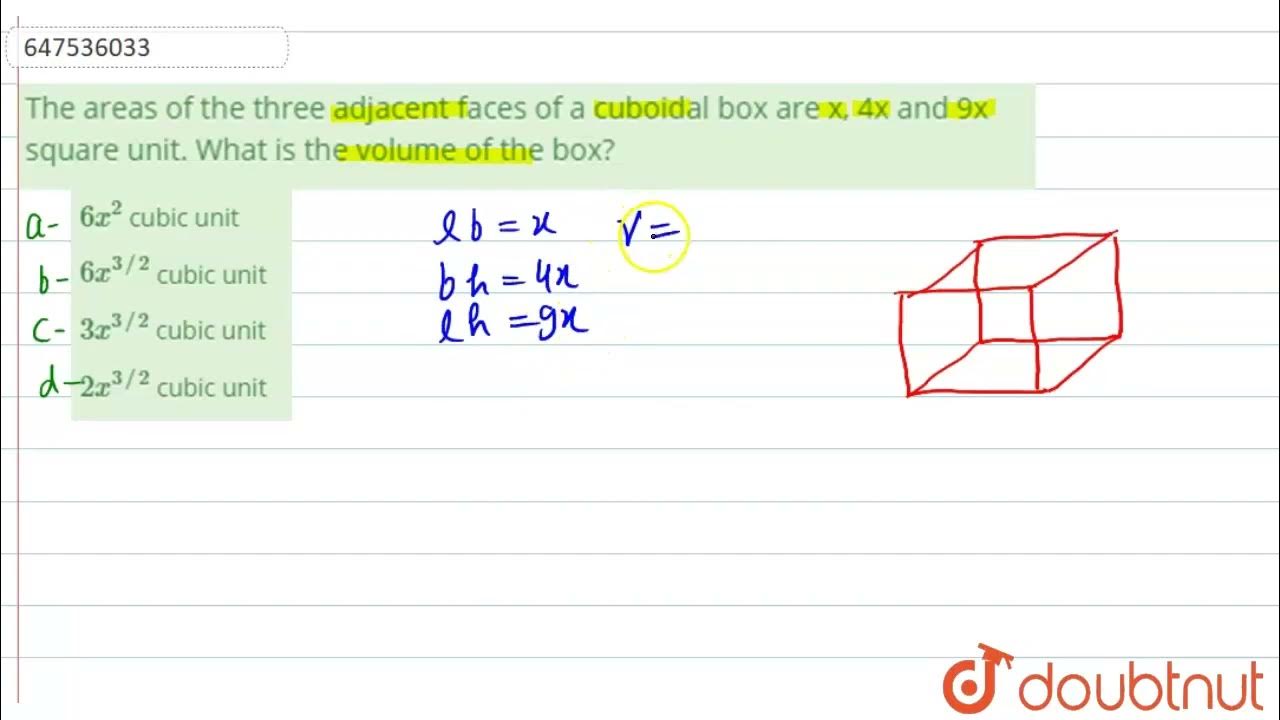 647536033
The areas of the three adjacent faces of a cuboidal box are x, 4x and 9x
square unit. What is the volume of the box?
a- 6x^2 cubic unit
b- 6x^{3/2} cubic unit
c- 3x^{3/2} cubic unit
d- 2x^{3/2} cubic unit
lb = x V =
bh = 4x
lh = 9x
doubtnut